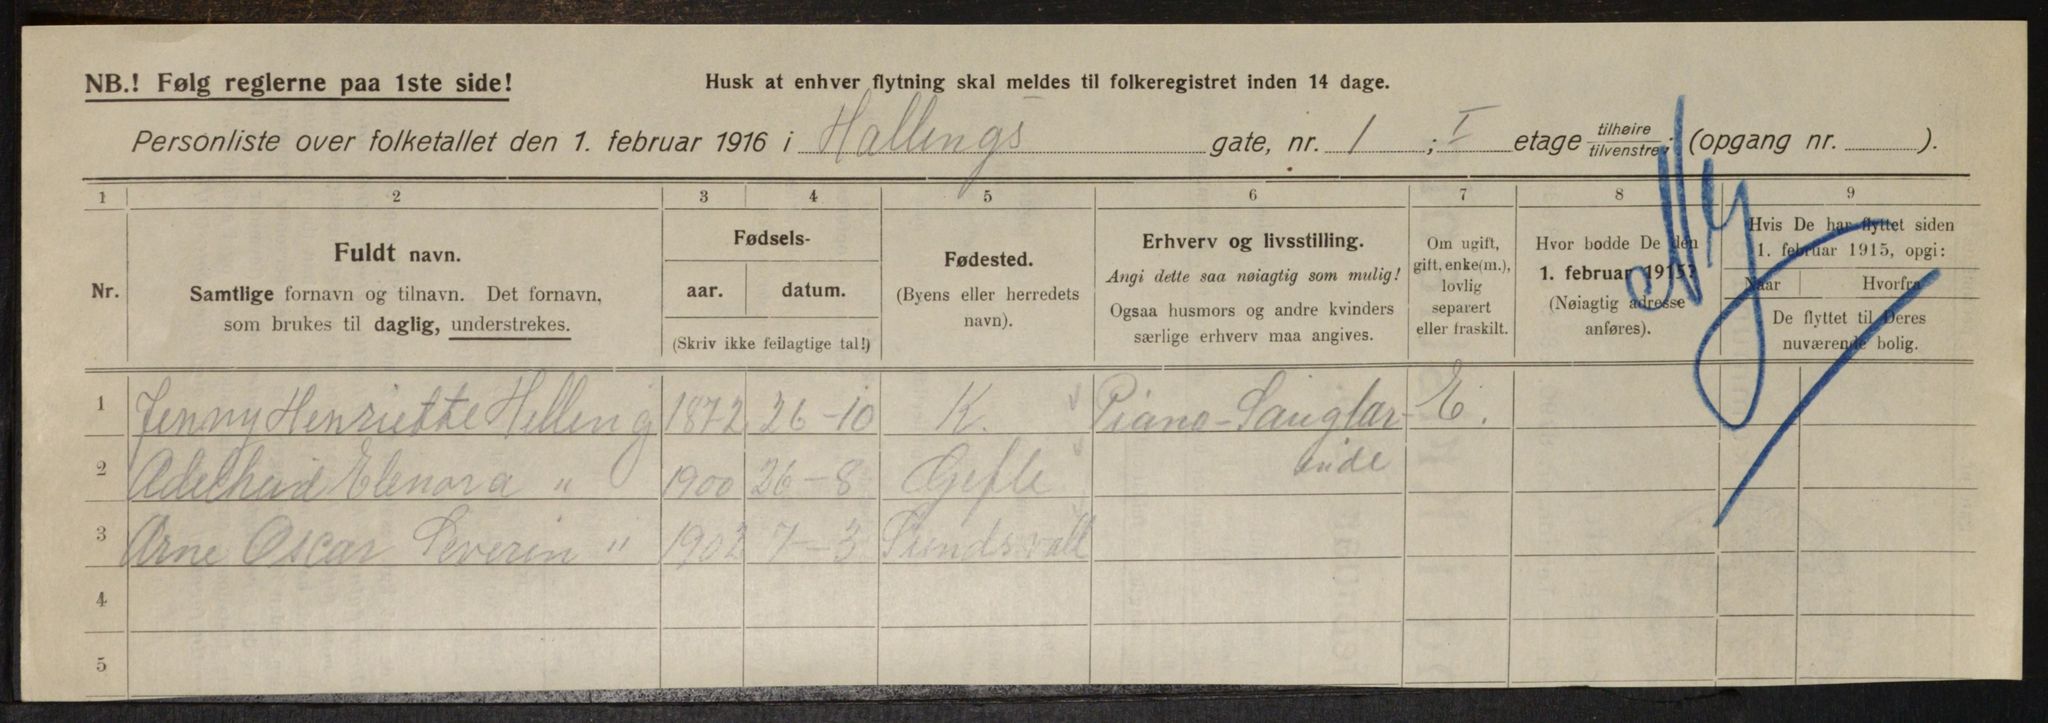 NB.! Følg reglerne paa 1ste side!
Husk at enhver flytning skal meldes til folkeregistret inden 14 dage.
Personliste over folketallet den 1. februar 1916 i Hallings gate, nr. 1 ; I etage tilhøire/tilvenstre, (opgang nr. ).
1 2 3 4 5 6 7 8 9
Nr.
Fuldt navn.
Samtlige fornavn og tilnavn. Det fornavn,
som brukes til daglig, understrekes.
Fødsels-
aar. datum.
(Skriv ikke feilagtige tal!)
Fødested.
(Byens eller herredets
navn).
Erhverv og livsstilling.
Angi dette saa nøiagtig som mulig!
Ogsaa husmors og andre kvinders
særlige erhverv maa angives.
Om ugift,
gift, enke(m.),
lovlig
separert
eller fraskilt.
Hvor bodde De den
1. februar 1915?
(Nøiagtig adresse
anføres).
Hvis De har flyttet siden
1. februar 1915, opgi:
Naar Hvorfra
De flyttet til Deres
nuværende bolig.
Ny
1 Jenny Henriette Helling 1872 26-10 K. Piano- E.
2 Elenora " 1900 26-8 Gefle
3 Arne Oscar Severin " 1902 7-3 Sundsvall
4
5